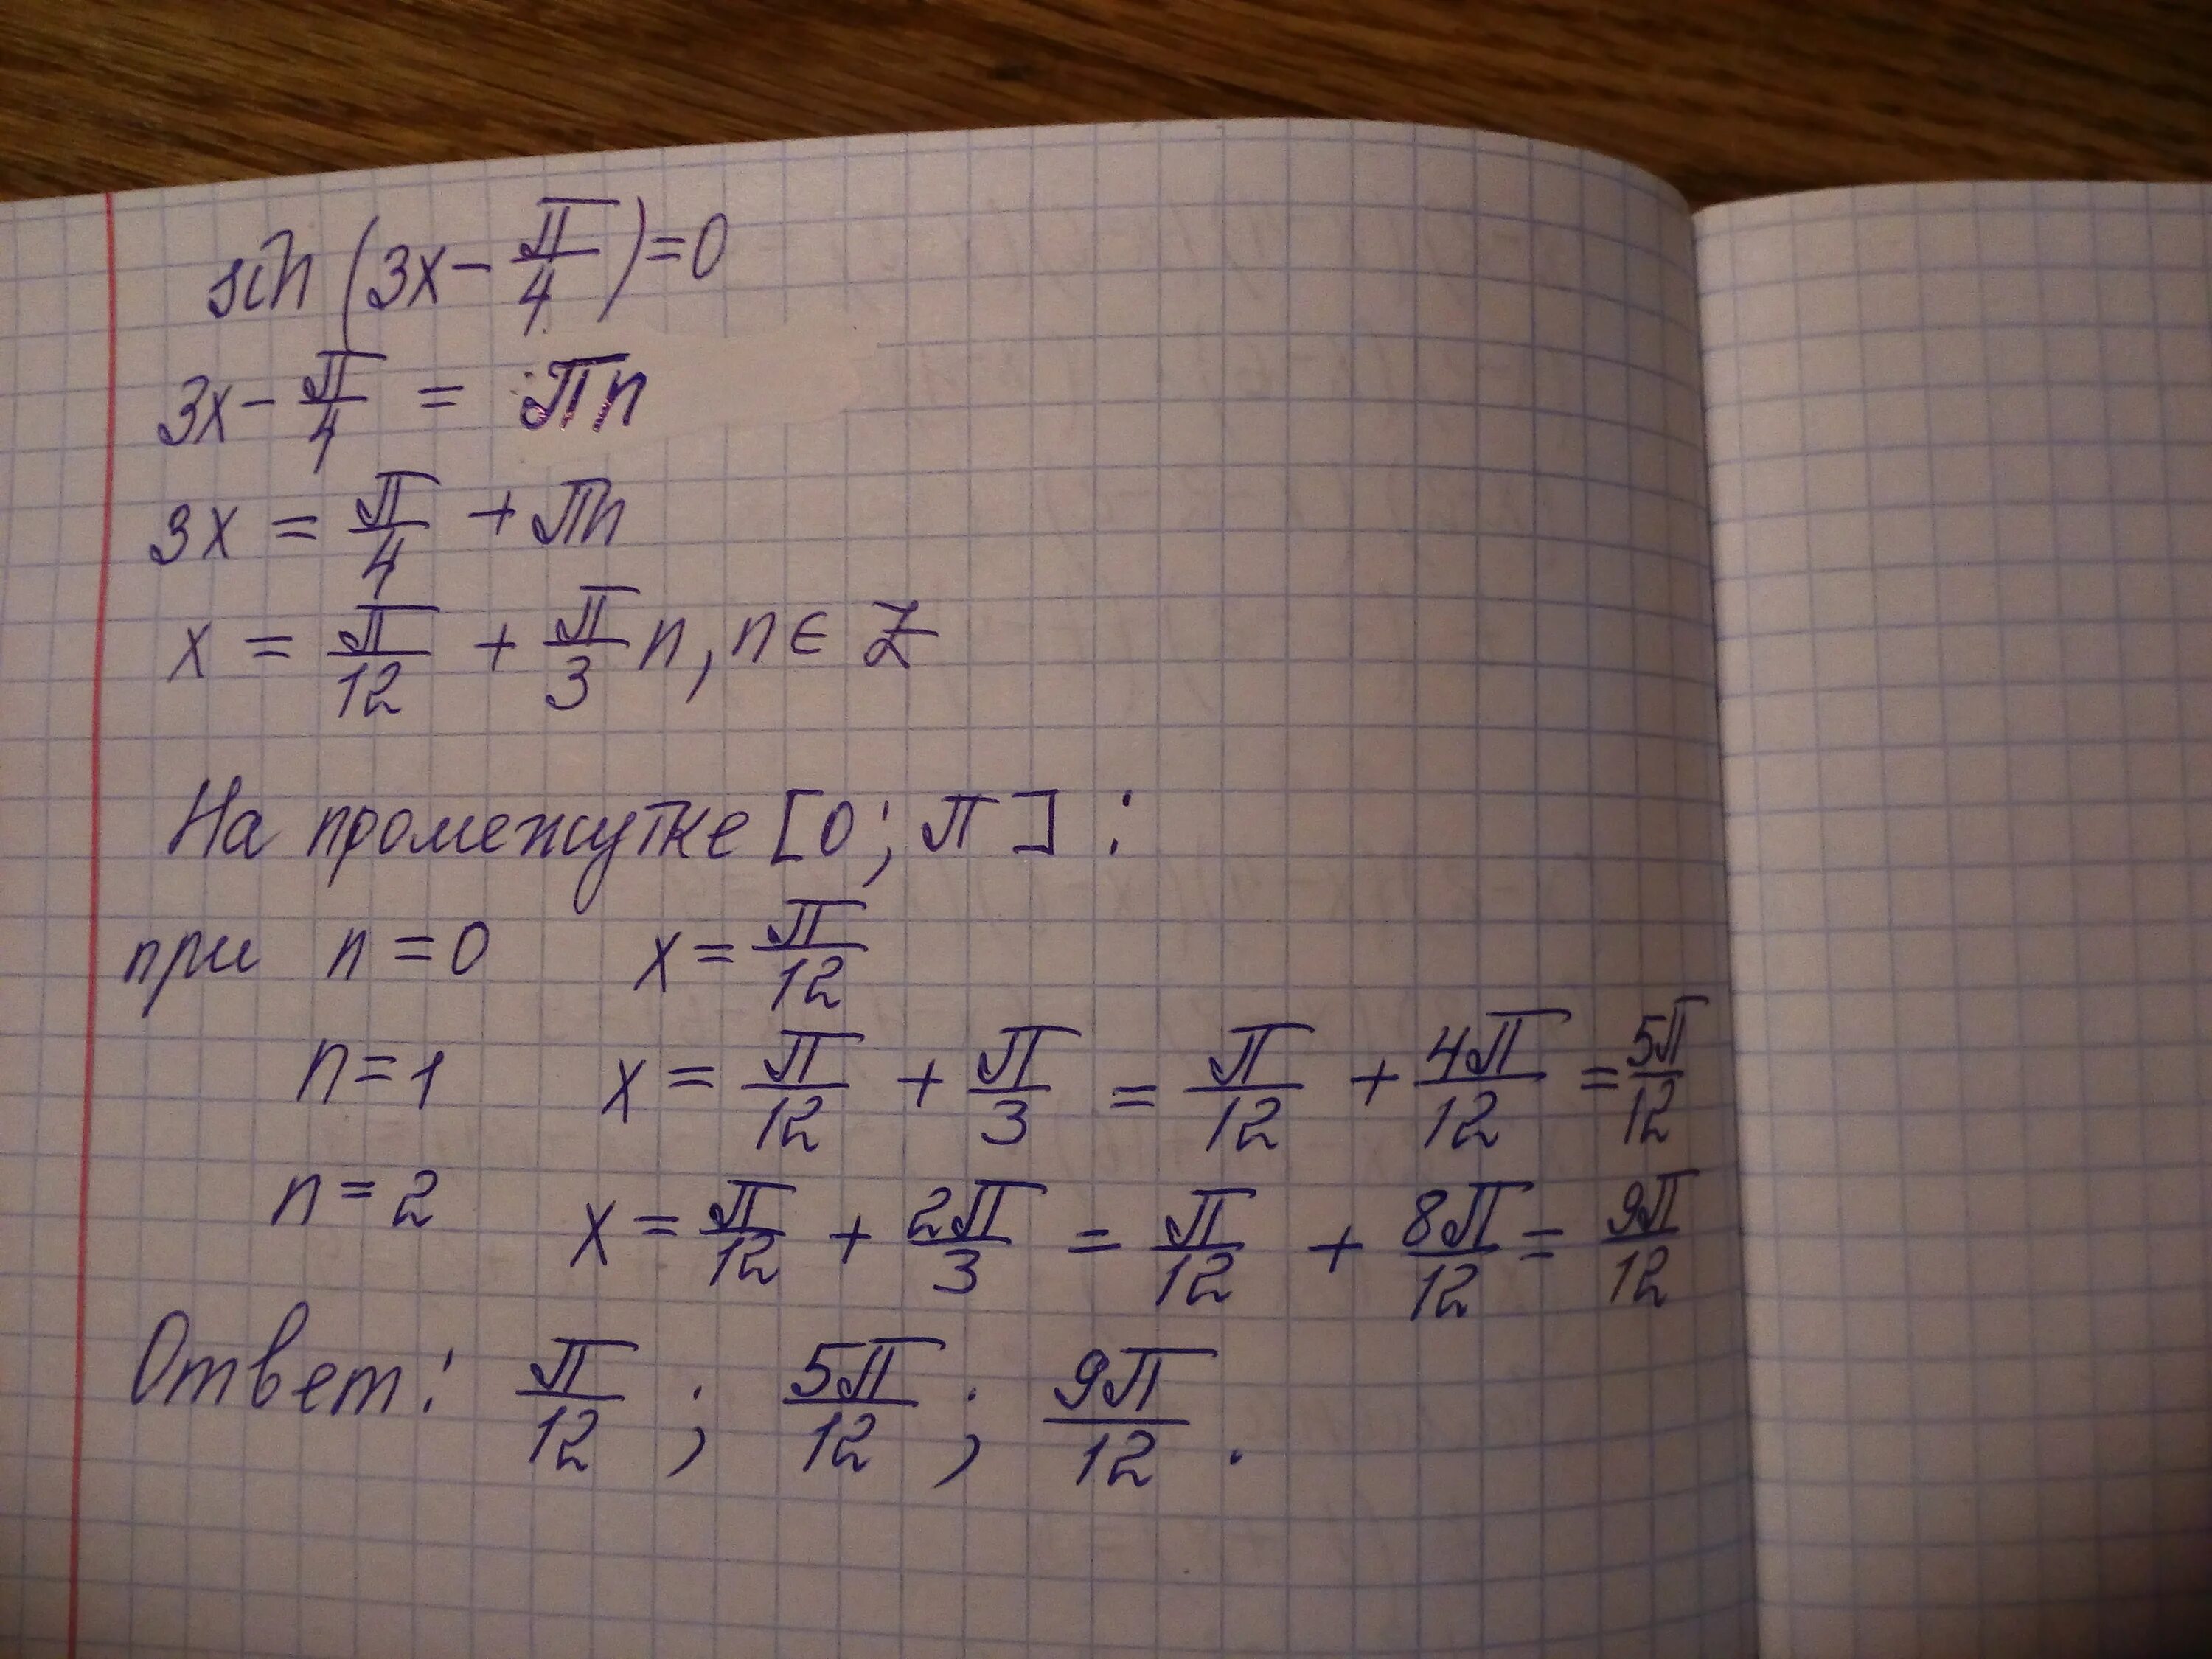 sin (3x - π/4) = 0
3x - π/4 = πn
3x = π/4 + πn
x = π/12 + π/3 n, n ∈ Z
На промежутке [0; π] :
при n = 0 x = π/12
n = 1 x = π/12 + π/3 = π/12 + 4π/12 = 5π/12
n = 2 x = π/12 + 2π/3 = π/12 + 8π/12 = 9π/12
Ответ: π/12 ; 5π/12 ; 9π/12 .